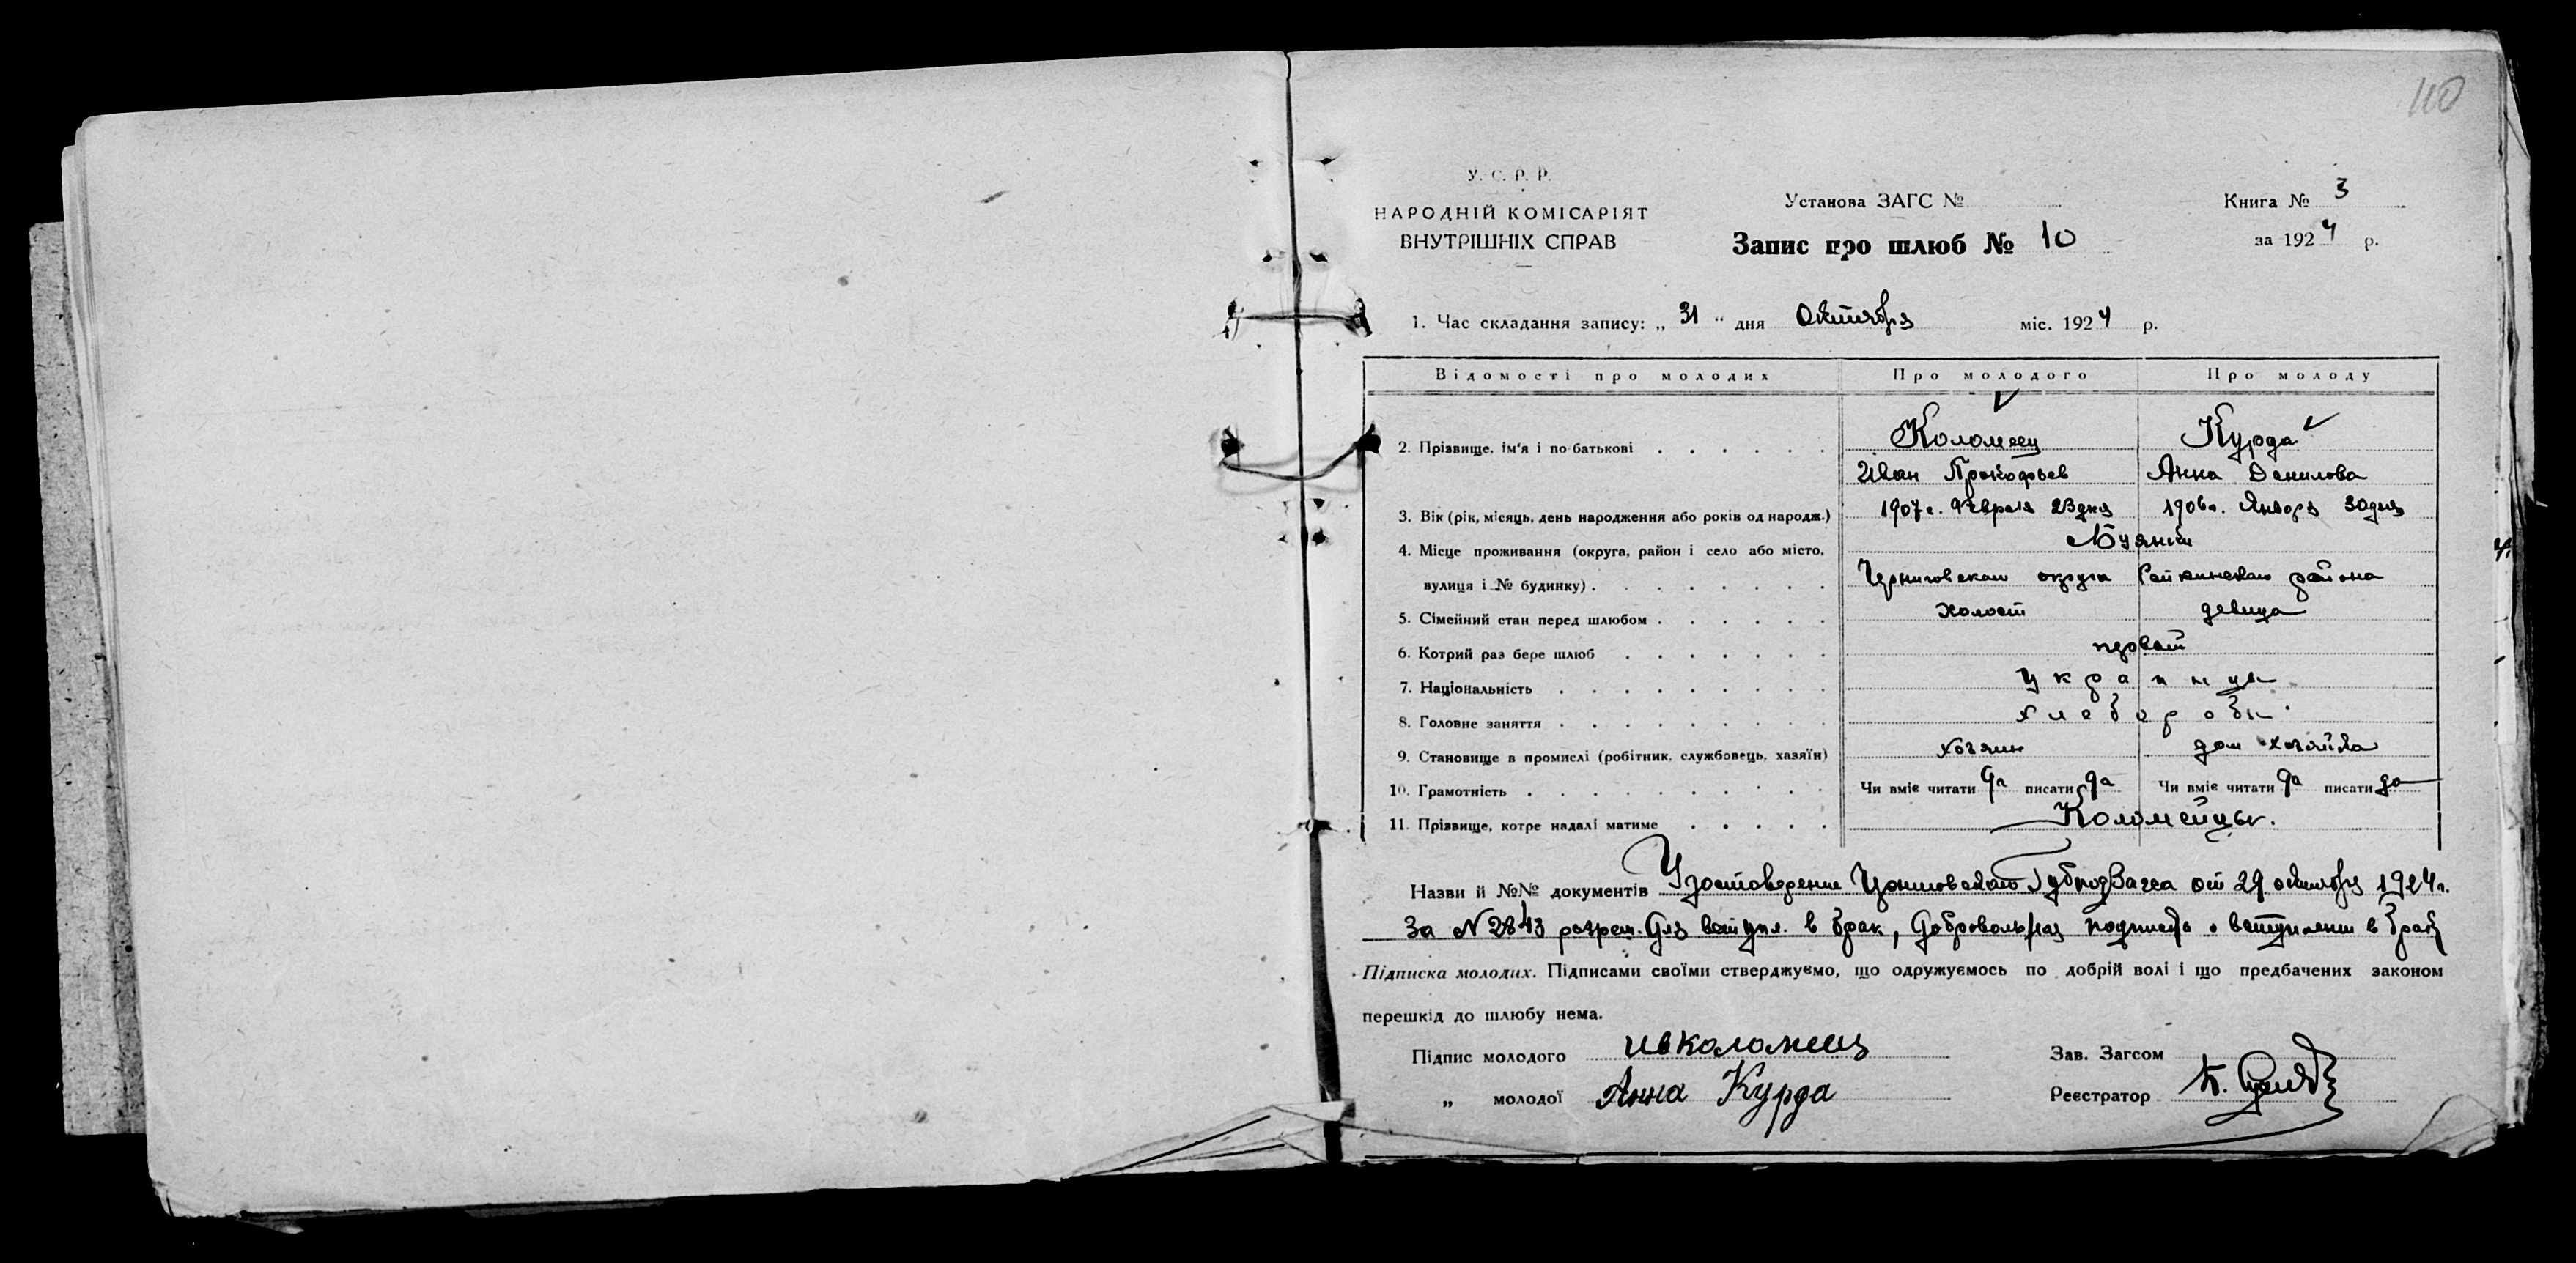 110
У. С. Р. Р.
НАРОДНІЙ КОМІСАРІЯТ
ВНУТРІШНІХ СПРАВ
Установа ЗАГС №
Запис про шлюб № 10
Книга № 3
за 1924 р.
1. Час складання запису: „ 31 " дня Октября міс. 1924 р.
Відомості про молодих Про молодого Про молоду
2. Прізвище, ім'я і по-батькові Коломеец Курда
Иван Прокофьев Анна Данилова
3. Вік (рік, місяць, день народження або років од народж.) 1907 г. Февраля 23 дня 1906 г. Января 30 дня
4. Місце проживання (округа, район і село або місто, Буянки
вулиця і № будинку) Черниговском округа района
5. Сімейний стан перед шлюбом холост девица
6. Котрий раз бере шлюб первый
7. Національність украинцы
8. Головне заняття хлеборобы
9. Становище в промислі (робітник, службовець, хазяїн) хозяин дом хозяйка
10. Грамотність Чи вміє читати да писати да Чи вміє читати да писати да
11. Прізвище, котре надалі матиме Коломейцы.
Назви й №№ документів Удостоверение от 29 октября 1924 г.
За N 2843 разреш. для вступл. в брак, Добровольная подписка о вступлении в брак
Підписка молодих. Підписами своїми стверджуємо, що одружуємось по добрій волі і що предбачених законом
перешкід до шлюбу нема.
Підпис молодого ив коломеец
„ молодої Анна Курда
Зав. Загсом
Реєстратор